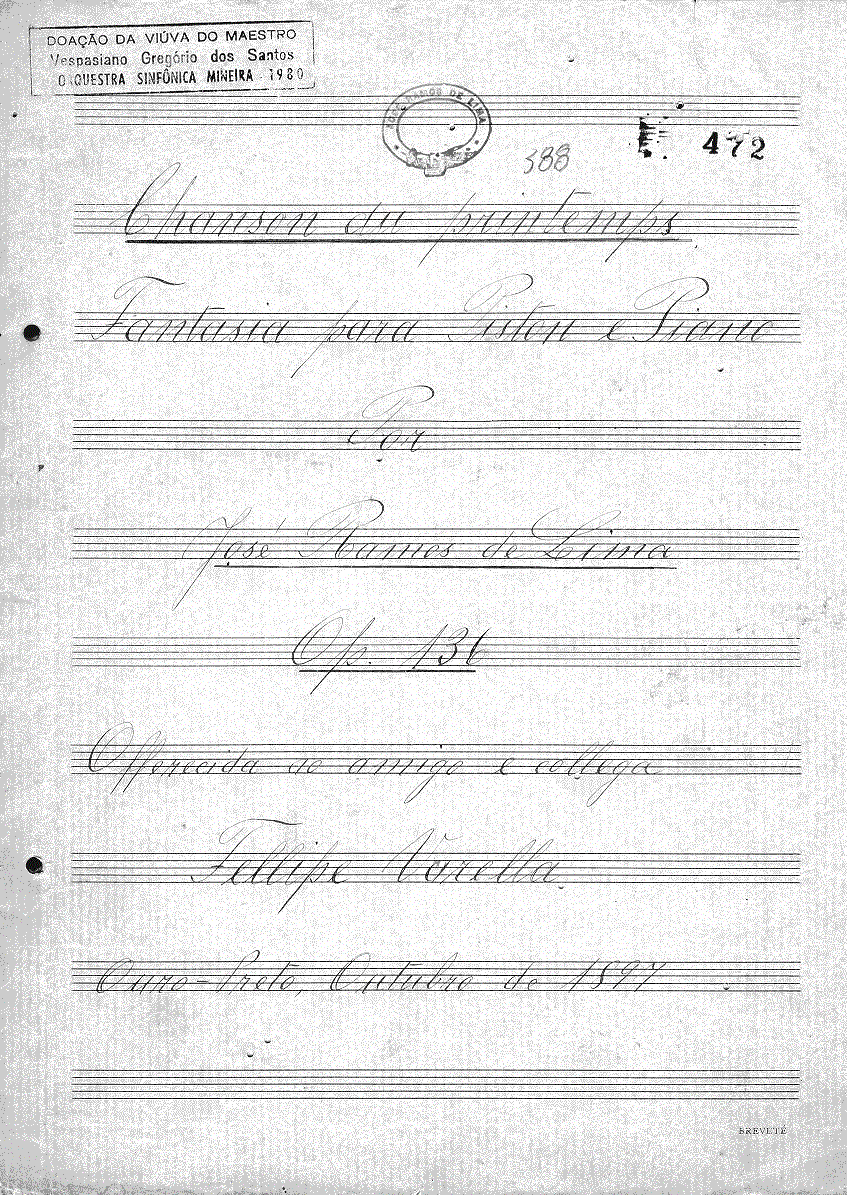 DOAÇÃO DA VIÚVA DO MAESTRO
Vespasiano Gregório dos Santos
ORQUESTRA SINFÔNICA MINEIRA - 1980
JOSÉ RAMOS DE LIMA
388
472
Chanson du printemps
Fantasia para Piston e Piano
Por
José Ramos de Lima
Op. 136
Offerecida ao amigo e collega
Fellipe Varella
Ouro-Preto, Outubro de 1897
BREVETÉ